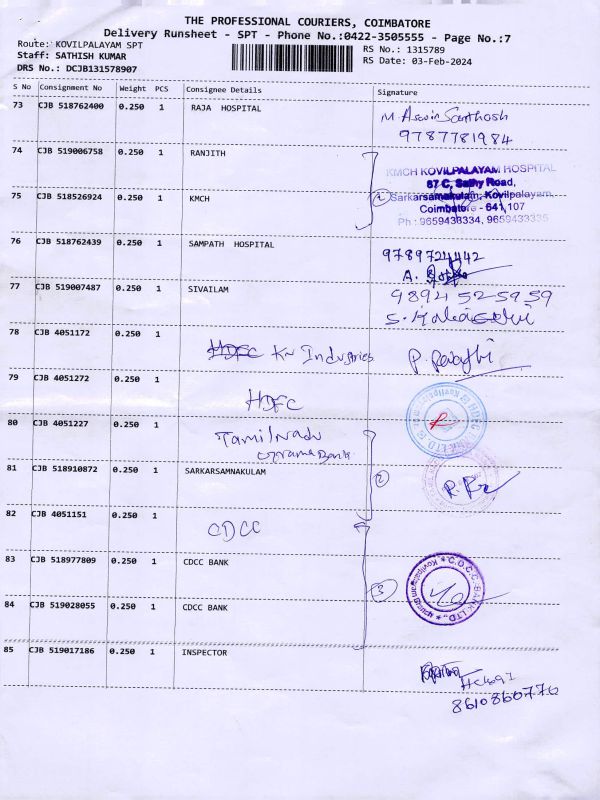 THE PROFESSIONAL COURIERS, COIMBATORE
Delivery Runsheet - SPT - Phone No.:0422-3505555 - Page No.:7
Route: KOVILPALAYAM SPT
RS No.: 1315789
Staff: SATHISH KUMAR
RS Date: 03-Feb-2024
DRS No.: DCJB131578907
S No Consignment No Weight PCS Consignee Details Signature
73 CJB 518762400 0.250 1 RAJA HOSPITAL
9787781984
74 CJB 519006758 0.250 1 RANJITH
KMCH KOVILPALAYAM HOSPITAL
67 C, Sathy Road,
75 CJB 518526924 0.250 1 KMCH
Sarkarsamakulam, Kovilpalayam,
Coimbatore - 641 107
Ph : 9659433334, 9659433335
76 CJB 518762439 0.250 1 SAMPATH HOSPITAL
9789724442
77 CJB 519007487 0.250 1 SIVAILAM
98945 25959
78 CJB 4051172 0.250 1
HDFC Kv Industries
79 CJB 4051272 0.250 1
HDFC
80 CJB 4051227 0.250 1
Tamilnadu
Grama Bank
81 CJB 518910872 0.250 1 SARKARSAMNAKULAM
2
82 CJB 4051151 0.250 1
CDCC
83 CJB 518977809 0.250 1 CDCC BANK
3
84 CJB 519028055 0.250 1 CDCC BANK
85 CJB 519017186 0.250 1 INSPECTOR
8610860770